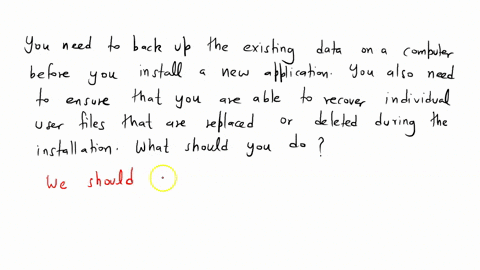 You need to back up the existing data on a computer
before you install a new application. You also need
to ensure that you are able to recover individual
user files that are replaced or deleted during the
installation. What should you do?
We should